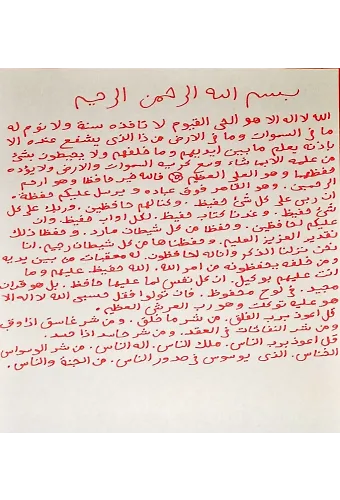 بسم الله الرحمن الرحيم
الله لا اله الا هو الحي القيوم لا تأخذه سنة ولا نوم له
ما في السموات وما في الارض من ذا الذي يشفع عنده الا
بإذنه يعلم ما بين ايديهم وما خلفهم ولا يحيطون بشئ
من علمه الا بما شاء وسع كرسيه السموات والارض ولا يؤده
حفظهما وهو العلي العظيم فالله خير حافظا وهو ارحم
الرحمين. وهو القاهر فوق عباده ويرسل عليكم حفظة.
ان ربي على كل شئ حفيظ. وكنا لهم حافظين. وربك على كل
شئ حفيظ. وعندنا كتاب حفيظ. لكل اواب حفيظ. وان
عليكم لحافظين. وحفظا من كل شيطان مارد. وحفظا ذلك
تقدير العزيز العليم. وحفظناها من كل شيطان رجيم. انا
نحن نزلنا الذكر وانا له لحافظون. له معقبات من بين يديه
ومن خلفه يحفظونه من امر الله. الله حفيظ عليهم وما
انت عليهم بوكيل. ان كل نفس لما عليها حافظ. بل هو قرآن
مجيد. في لوح محفوظ. فان تولوا فقل حسبي الله لا اله الا
هو عليه توكلت وهو رب العرش العظيم.
قل اعوذ برب الفلق. من شر ما خلق. ومن شر غاسق اذا وقب
ومن شر النفاثات في العقد. ومن شر حاسد اذا حسد.
قل اعوذ برب الناس. ملك الناس. اله الناس. من شر الوسواس
الخناس. الذي يوسوس في صدور الناس. من الجنة والناس.